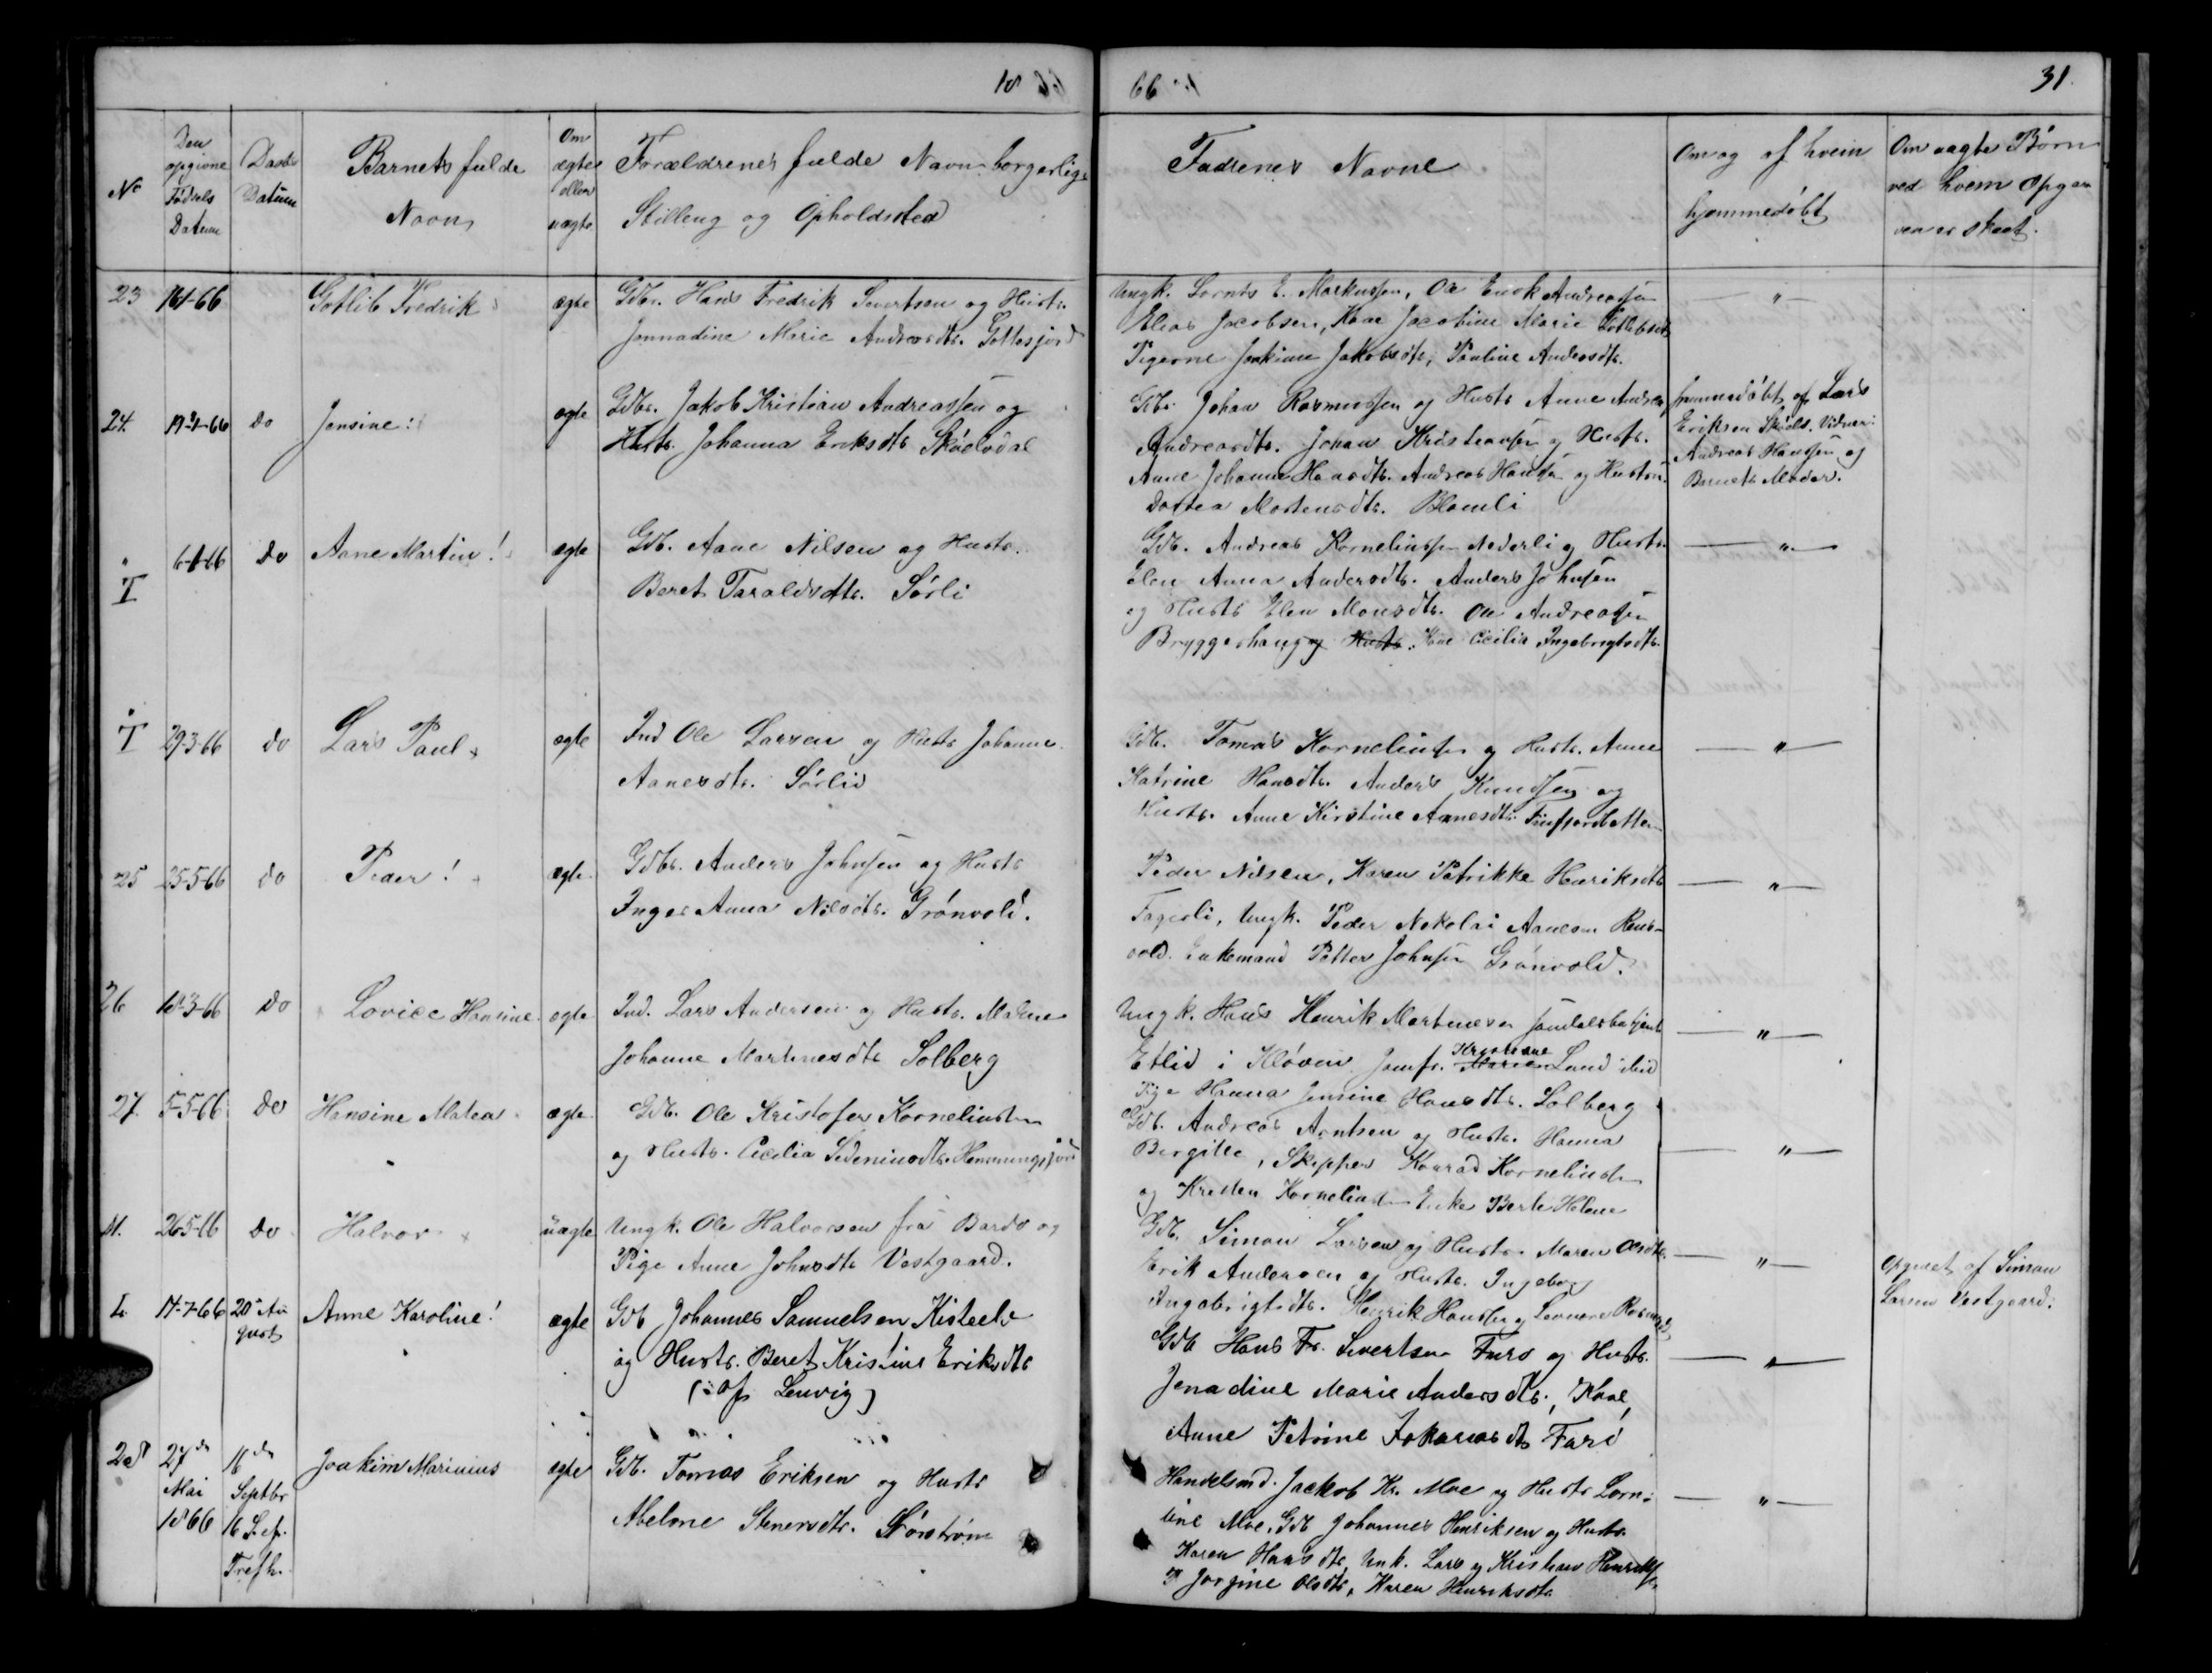 18 66
66
31.
No
Den opgivne Fødsels Datum
Daabs Datum
Barnets fulde Navn
Om ægte eller uægte
Forældrenes fulde Navn borgerlige Stilling og Opholdsted
Faderenes Navne
Om og af hvem hjemmedøbt
Om uægte Børn ved hvem Opgaven er skeet.
23 16/1-66 Gotlib Fredrik ægte
Gdb. Hans Fredrik Sivertsen og Hustr.
Jennadine Marie Andreasdtr. Gottesjord
Ungk. Lornts E. Markussen, Ole Enok Andreassen
Elias Jacobsen, Kone Jacobine Marie
Pigerne Joakime Jakobsdtr, Pauline Andersdtr.
— " —
24. 19-2-66 do Jensine: ægte
Gdbr. Jakob Kristian Andreassen og
Hustr. Johanna Eriksdtr
Gdb. Johan Rasmussen og Hustr Anne
Andreasdtr. Johan Kristiansen og Hustr.
Anne Johanna Hansdtr. Andreas Hansen og Hustru
Dortea Mortensdtr. Blomli
hjemmedøbt af Lars
Eriksen Vidner:
Andreas Hanssen og
Barnets Moder.
" T 6-1-66 do Aane Martin! ægte
Gdb. Aane Nilsen og Hustr.
Beret Taraldsdtr. Sørli
Gdb. Andreas Korneliussen Nederli og Hustr.
Elen Anna Andersdtr. Anders Johnsen
og Hustr Elen Monsdtr. Ole Andreassen
Bryggerhaug og Hustr. Kone Cicilia Ingebrigtsdtr.
— " —
" T 29-3-66 do Lars Paul ægte
Ind Ole Larsen og Hustr Johanna
Aanesdtr. Sørlid
Gdb. Tomas Korneliussen og Hustr. Anne
Katrine Hansdtr. Anders Knudsen og
Hustr. Anne Kirstine Aanesdtr. Finfjordbotten
— " —
25 25-5-66 do Peder! ægte
Gdbr. Anders Johnsen og Hustr
Inger Anna Nilsdtr. Grønvold.
Peder Nilsen, Karen Patrikke Henriksdtr
Fagerli, Ungk. Peder Nikolai Aanesen
vold. Enkemand Petter Johnsen Grønvold.
— " —
26 18-3-66 do Lovise Hansine ægte
Ind. Lars Andersen og Hustr. Malene
Johanne Martinesdtr Solberg
Ungk. Hans Henrik Martinesen
Etlid i Kløven Jomfr. Marien Lund ibid
Pige Hanna Jensine Hansdtr. Solberg
— " —
27. 5-5-66 do Hansine Matea ægte
Gdb. Ole Kristofer Korneliussen
og Hustr. Cecilia Hemmingsjord
Gdb. Andreas Arntsen og Hustr. Hanna
Birgitte, Skipper Konrad Korneliussen
og Kristen Korneliussen Enke Berte Helene
— " —
M. 26-5-66 do Halvor uægte
Ungk. Ole Halvorsen fra Bardo og
Pige Anne Johnsdtr Vestgaard.
Gdb. Simon Larsen og Hustr. Maren Olsdtr.
Erik Andersen og Hustr. Ingeborg
Ingebrigtsdtr. Henrik Hanssen og
— " —
Opgivet af Simon
Larsen Vestgaard.
L. 17-7-66 20de August Anne Karoline! ægte
Gdb Johannes Samuelsen Kistefos
og Hustr. Beret Kristine Eriksdtr
(: af Lenvig)
Gdb Hans Fr. Sivertsen Farø og Hustr.
Jenadine Marie Andersdtr, Kone,
Anne Petrine Johannesdtr Farø
— " —
28 27de Mai 1866 16de Septbr 16 S. ef. Trefh. Joakim Marinius ægte
Gdb. Tomas Eriksen og Hustr
Abelone Stenersdtr. Sørstrøm
Handelsmd. Jackob Kr. Moe og Hustr
Moe, Gdb Johannes Henriksen og Hustr.
Karen Hansdtr, Unk. Lars og Kristian Henriksen
P. Jorgine Olsdtr, Karen Henriksdtr.
— " —